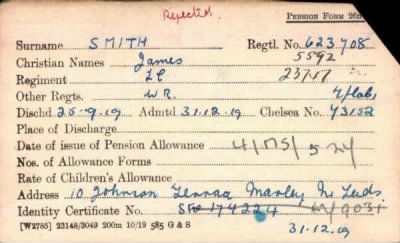 Rejected.
PENSION FORM 26
Surname SMITH Regtl. No. 623708
Christian Names James 5592
Regiment LC 23717
Other Regts. W.R. 4/Labs
Dischd 25-9-19 Admtd 31.12.19 Chelsea No. 43152
Place of Discharge
Date of issue of Pension Allowance
Nos. of Allowance Forms
Rate of Children's Allowance
Address 10 Johnson Terrace Morley Nr Leeds.
Identity Certificate No. 174224
[W2785] 23148/3049 200m 10/19 585 G & S 31-12-19